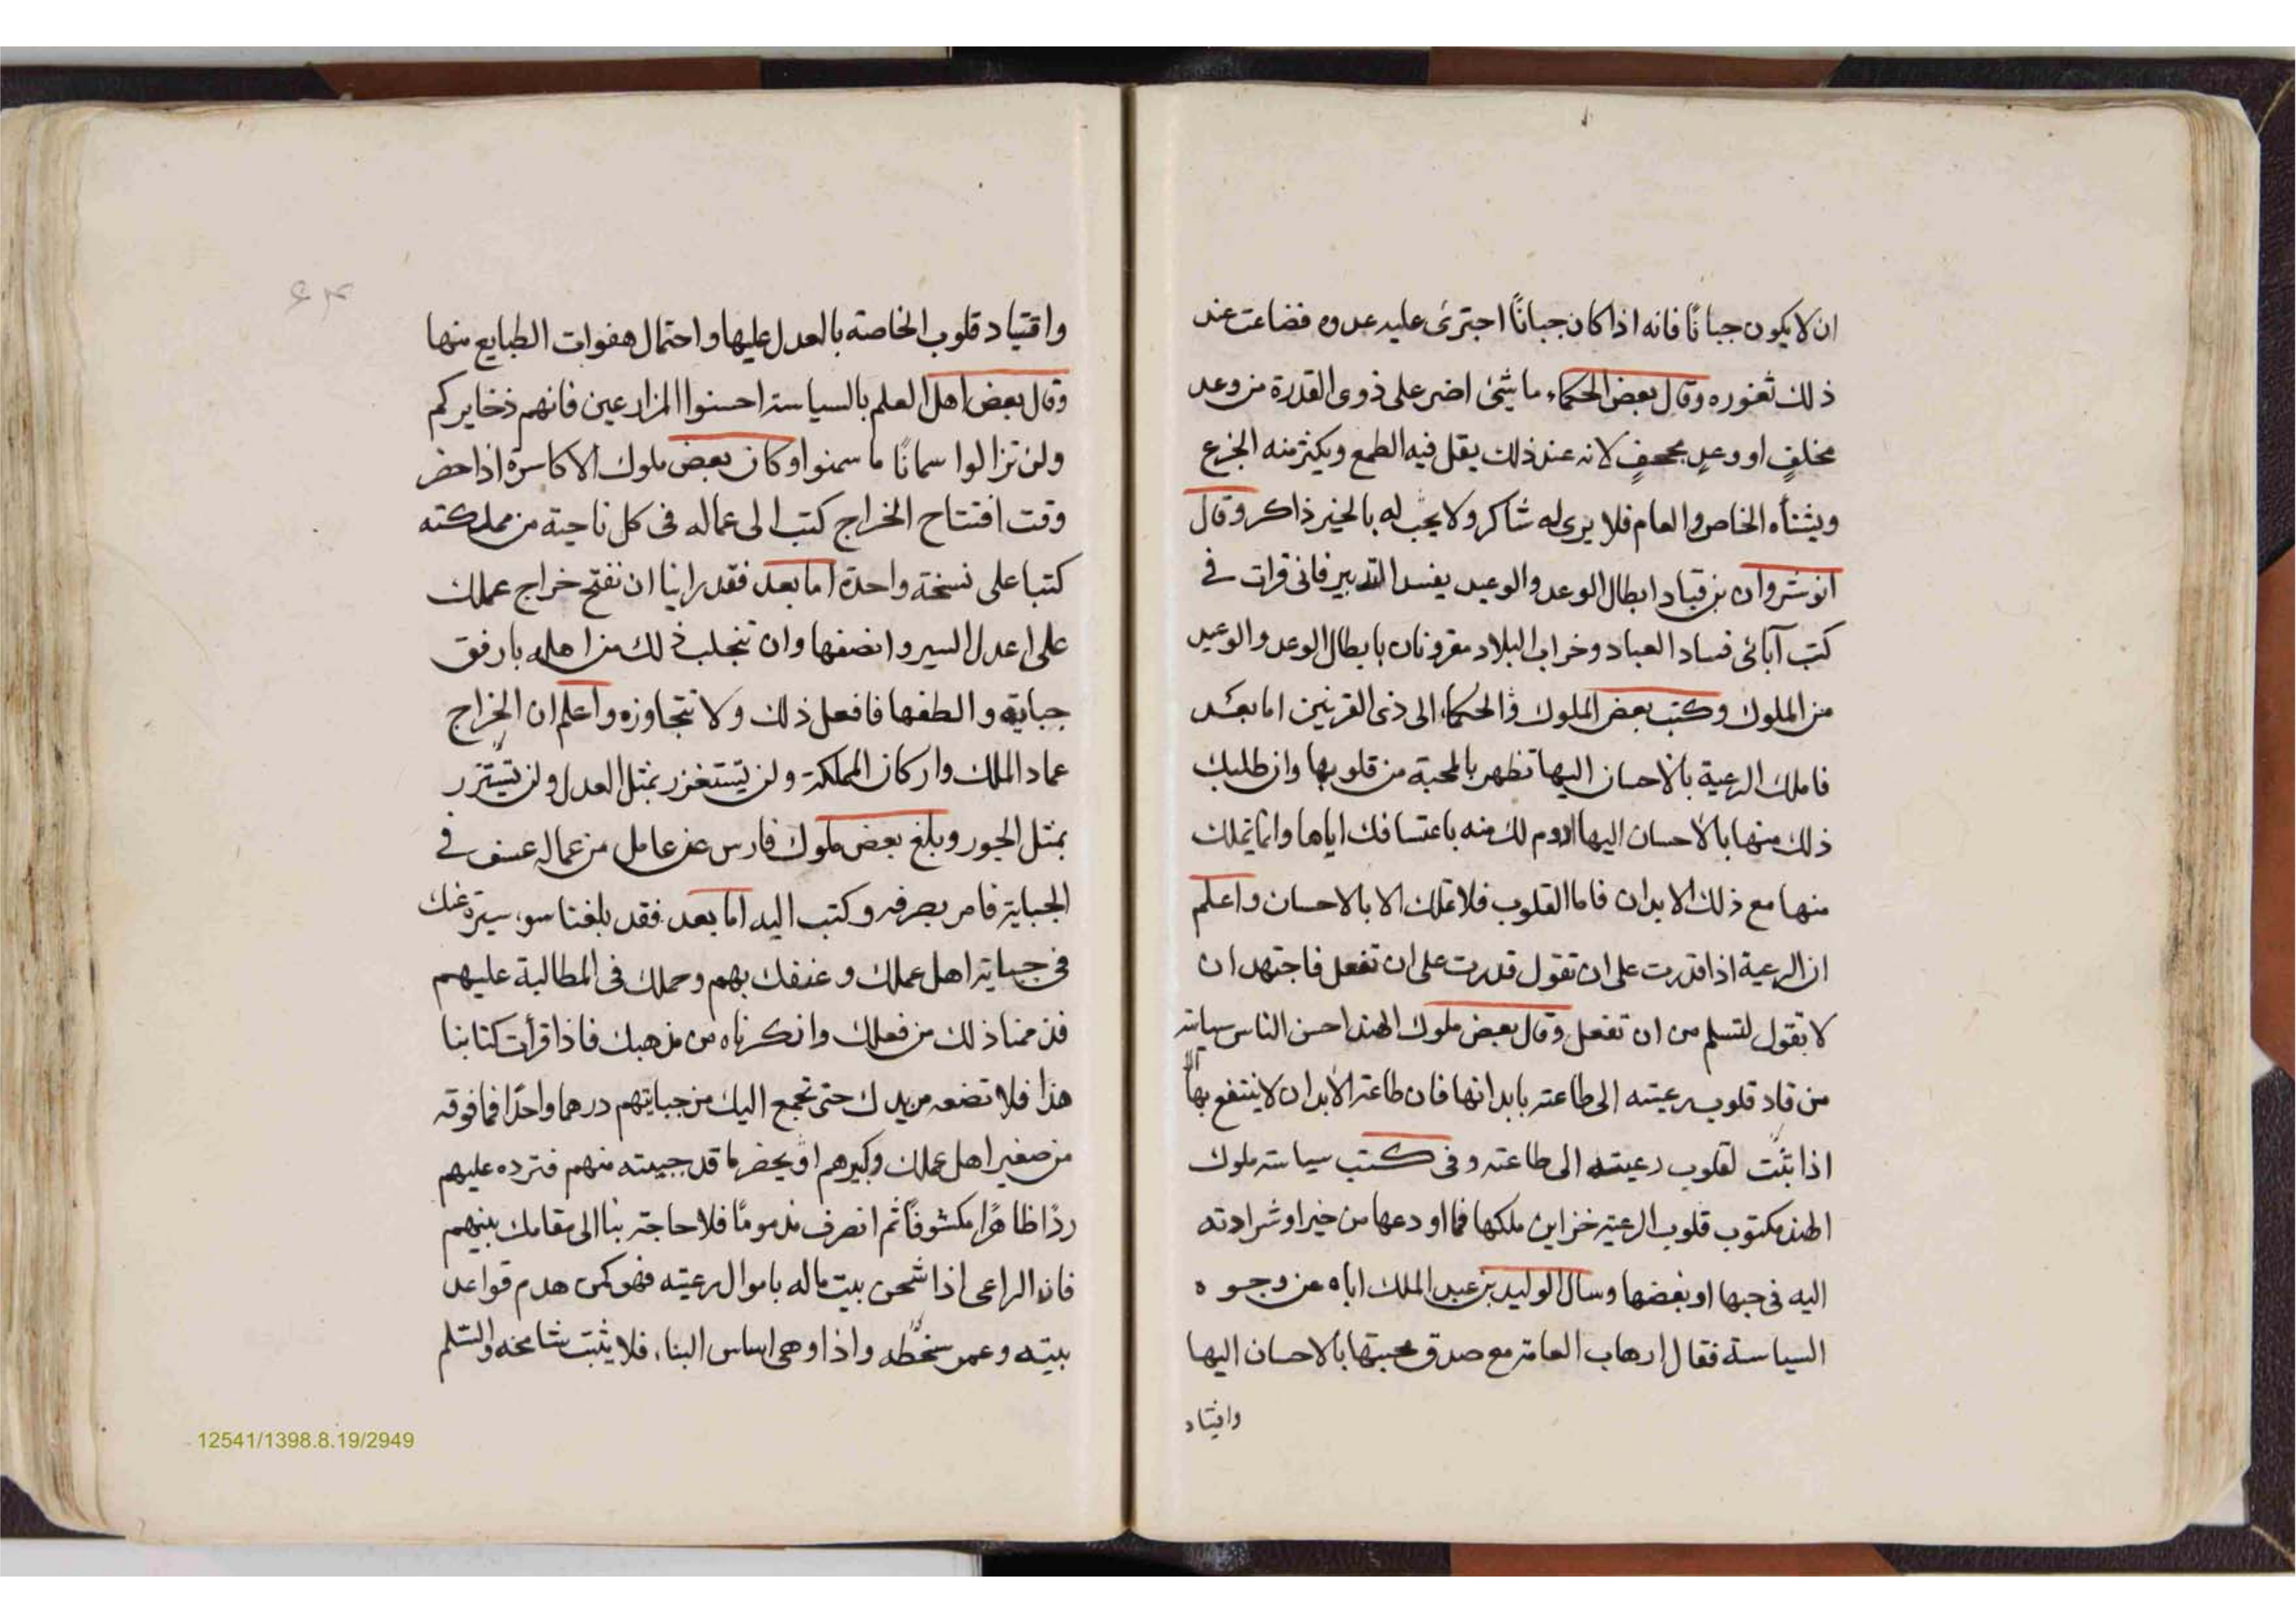 ان لا يكون جبانًا فانه اذا كان جبانًا اجترئ عليه عدوه فضاعت عند
ذلك ثغوره وقال بعض الحكماء ما شئ اضر على ذوى القدرة من وعد
مخلفٍ او وعدٍ مجحفٍ لانه عند ذلك يقل فيه الطمع ويكثر منه الجزع
ويشنأه الخاص والعام فلا يرى له شاكر ولا يجب له بالخير ذاكر وقال
انوشروان بن قباد ابطال الوعد والوعيد يفسد التدبير فانى قرات فى
كتب آبائى فساد العباد وخراب البلاد مقرونان بابطال الوعد والوعيد
من الملوك وكتب بعض الملوك والحكماء الى ذى القرنين اما بعد
فاملك الرعية بالاحسان اليها تظهر بالمحبة من قلوبها وان طلبك
ذلك منها بالاحسان اليها ادوم لك منه باعتسافك اياها وانما تملك
منها مع ذلك الابدان فاما القلوب فلا تملك الا بالاحسان واعلم
ان الرعية اذا قدرت على ان تقول قدرت على ان تفعل فاجتهد ان
لا تقول لتسلم من ان تفعل وقال بعض ملوك الهند احسن الناس سياسة
من قاد قلوب رعيته الى طاعته بابدانها فان طاعة الابدان لا ينتفع بها الا
اذا قلوب رعيته الى طاعته وفى كتب سياسة ملوك
الهند مكتوب قلوب الرعية خزاين ملكها فما اودعها من خير او شر ادته
اليه فى حبها او بغضها وسال الوليد بن عبد الملك اباه عن وجوه
السياسة فقال ارهاب العامة مع صدق محبتها بالاحسان اليها
واقتياد
۶۴
واقتياد قلوب الخاصة بالعدل عليها واحتمال هفوات الطبايع منها
وقال بعض اهل العلم بالسياسة احسنوا المزارعين فانهم ذخايركم
ولن تزالوا سمانًا ما سمنوا وكان بعض ملوك الاكاسرة اذا حضر
وقت افتتاح الخراج كتب الى عماله فى كل ناحية من مملكته
كتبا على نسخة واحدة اما بعد فقد راينا ان نفتح خراج عملك
على اعدل السير وانصفها وان نجلب ذلك من اهله بارفق
جباية والطفها فافعل ذلك ولا تتجاوزه واعلم ان الخراج
عماد الملك واركان المملكة ولن يستغزر بمثل العدل ولن يستنزر
بمثل الجور وبلغ بعض ملوك فارس عن عامل من عماله عسف فى
الجباية فامر بصرفه وكتب اليه اما بعد فقد بلغنا سوء سيرة عنك
فى جباية اهل عملك وعنفك بهم وحملك فى المطالبة عليهم
فذممنا ذلك من فعلك وانكرناه من مذهبك فاذا قرأت كتابنا
هذا فلا تضعه من يدك حتى تجمع اليك من جبايتهم درهما واحدًا فما فوقه
من صغير اهل عملك وكبيرهم او يحضر ما قد جبيته منهم فترده عليهم
ردًا ظاهرًا مكشوفًا ثم انصرف مذمومًا فلا حاجة بنا الى مقامك بينهم
فان الراعى اذا شحن بيت ماله باموال رعيته فهو كمن هدم قواعد
بيته وعمر سطحه واذا وهى اساس البناء فلا يثبت شامخه والسلم
12541/1398.8.19/2949